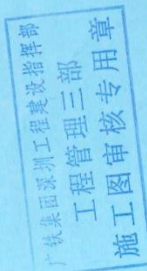 广铁集团深圳工程建设指挥部
工程管理三部
施工图审核专用章